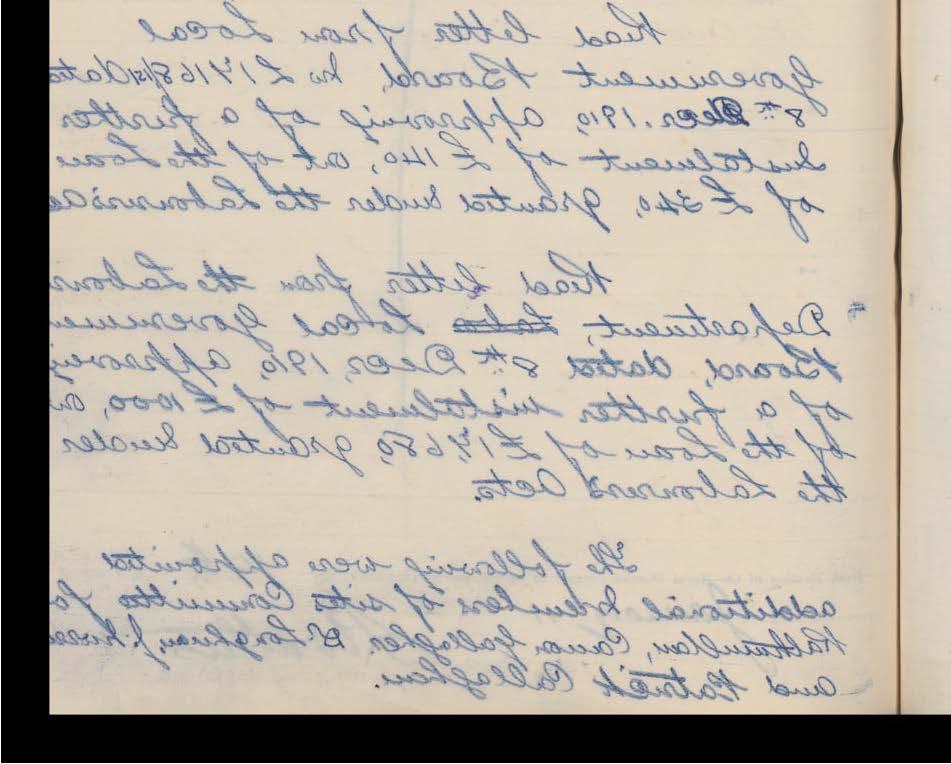 Read letter from Local
Government Board, No £17168/15/ dated
8th Decr. 1910, approving of a further
Instalment of £140, out of the Loan
of £340, granted under the Labourers Ac
Read letter from the Labour
Department, Labo Local Governmen
Board, dated 8th Decr, 1910, approving
of a further instalment of £1000, ou
of the Loan of £17,680, granted under
the Labourers Acts.
The following were appointed
additional members of sites Committee fo
Rathmullan, Canon Gallagher Dr
and Patrick Callaghan.